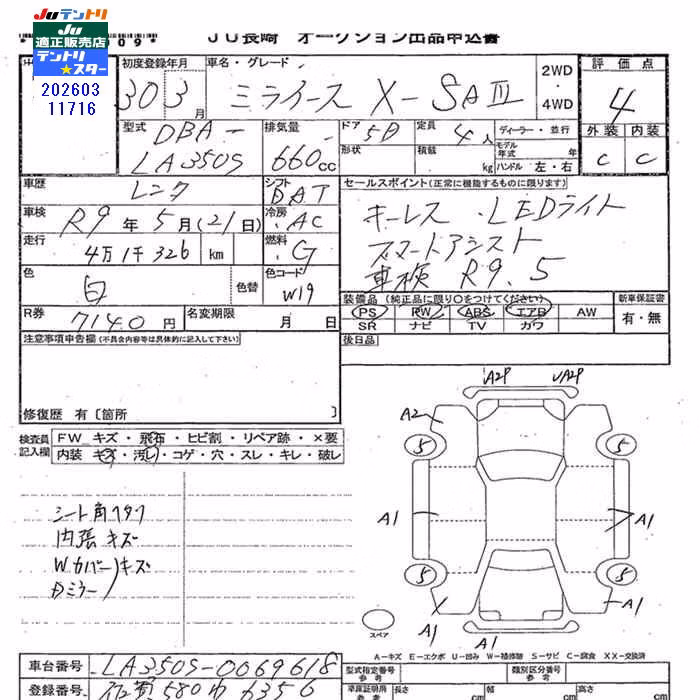 JUテントリ
JU
適正販売店
テントリ
★スター
202603
11716
09*
JU長崎 オークション出品申込書
初度登録年月
車名・グレード
30 3月
ミライース X-SAⅢ
2WD
・
4WD
評価点
4
外装 内装
C C
型式
DBA-
LA350S
排気量
660cc
ドア 5D
形状
定員 4人
積載 kg
ディーラー・並行
モデル年式 年
ハンドル 左・右
車歴
レンタ
シフト
DAT
車検
R9年5月(21日)
冷房
AC
走行
4万1千326 km
燃料
G
色
白
色替
色コード
W19
R券
7140円
名変期限
月 日
セールスポイント(正常に機能するものに限ります)
キーレス・LEDライト
スマートアシスト
車検 R9.5
装備品(純正品に限り○をつけてください)
新車保証書
PS PW ABS エアB AW
SR ナビ TV カワ
有・無
後日品
注意事項申告欄(不具合内容等は具体的に記入して下さい)
修復歴 有〔箇所 〕
検査員
記入欄
FW キズ・飛石・ヒビ割・リペア跡・×要
内装 キズ・汚レ・コゲ・穴・スレ・キレ・破レ
内張キズ
Wカバー)キズ
A29
A29
A2
5
5
A1
A1
A1
5
5
X
A1
A1
A1
スペア
A-キズ E-エクボ U-凹み W-補修跡 S-サビ C-腐食 XX-交換済
車台番号
LA350S-0069618
登録番号
佐賀580
6356
型式指定番号
参考
類別区分番号
参考
車庫証明用
参考
長さ cm
幅 cm
高さ cm